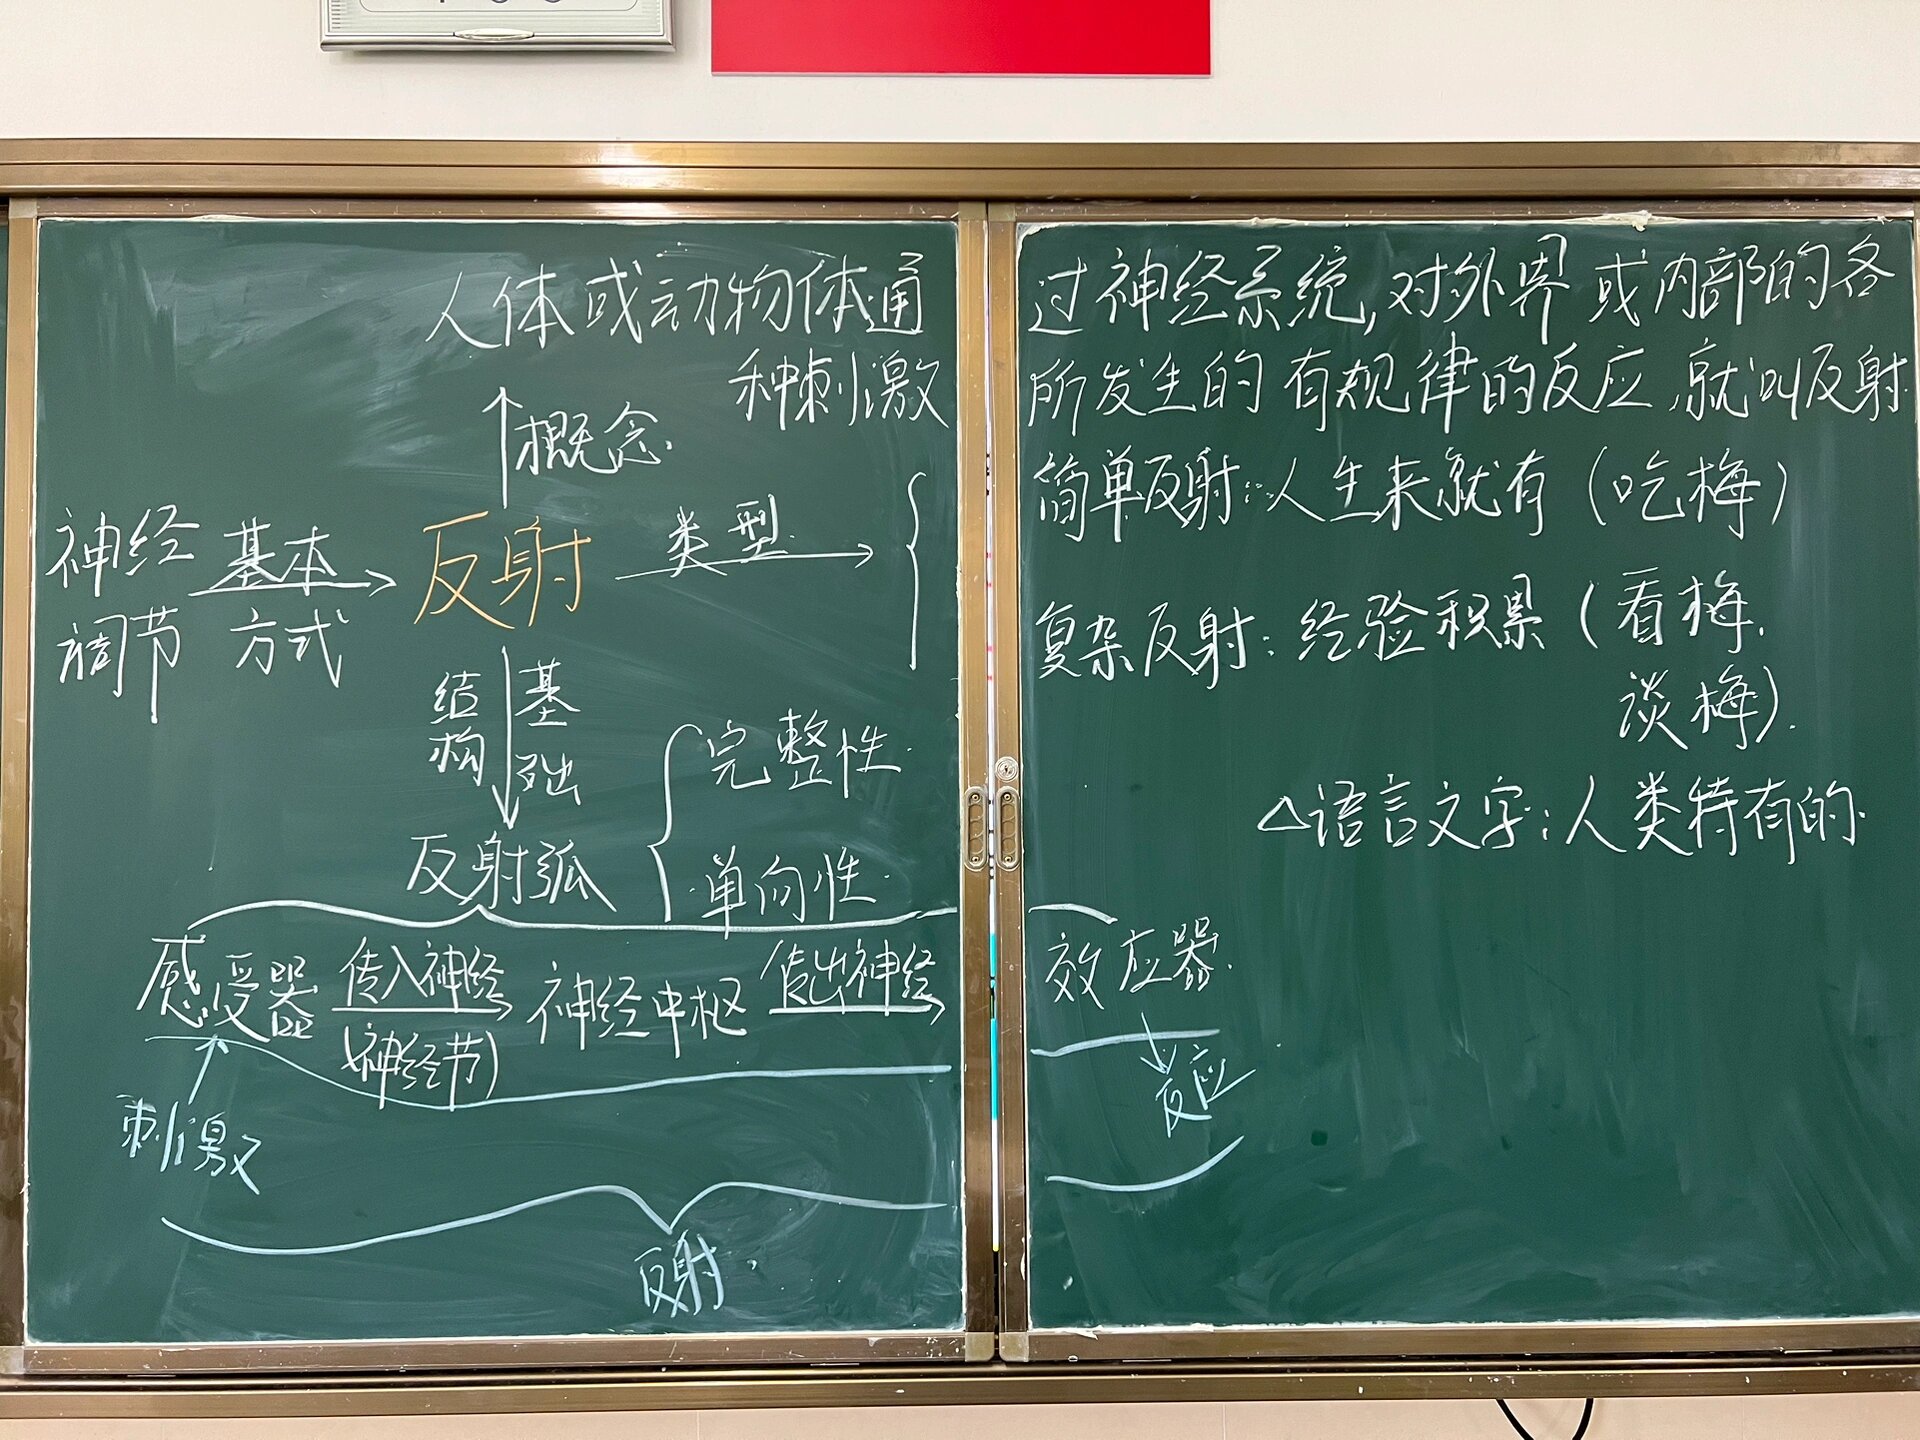 人体或动物体通过神经系统,对外界或内部的各
种刺激所发生的有规律的反应,就叫反射.
概念.
神经调节
基本方式
反射
类型.
简单反射:人生来就有(吃梅)
复杂反射:经验积累(看梅.
谈梅).
△语言文字:人类特有的.
结构
基础
反射弧
完整性.
单向性.
感受器 传入神经 神经中枢 传出神经 效应器.
(神经节)
刺激
反应
反射.